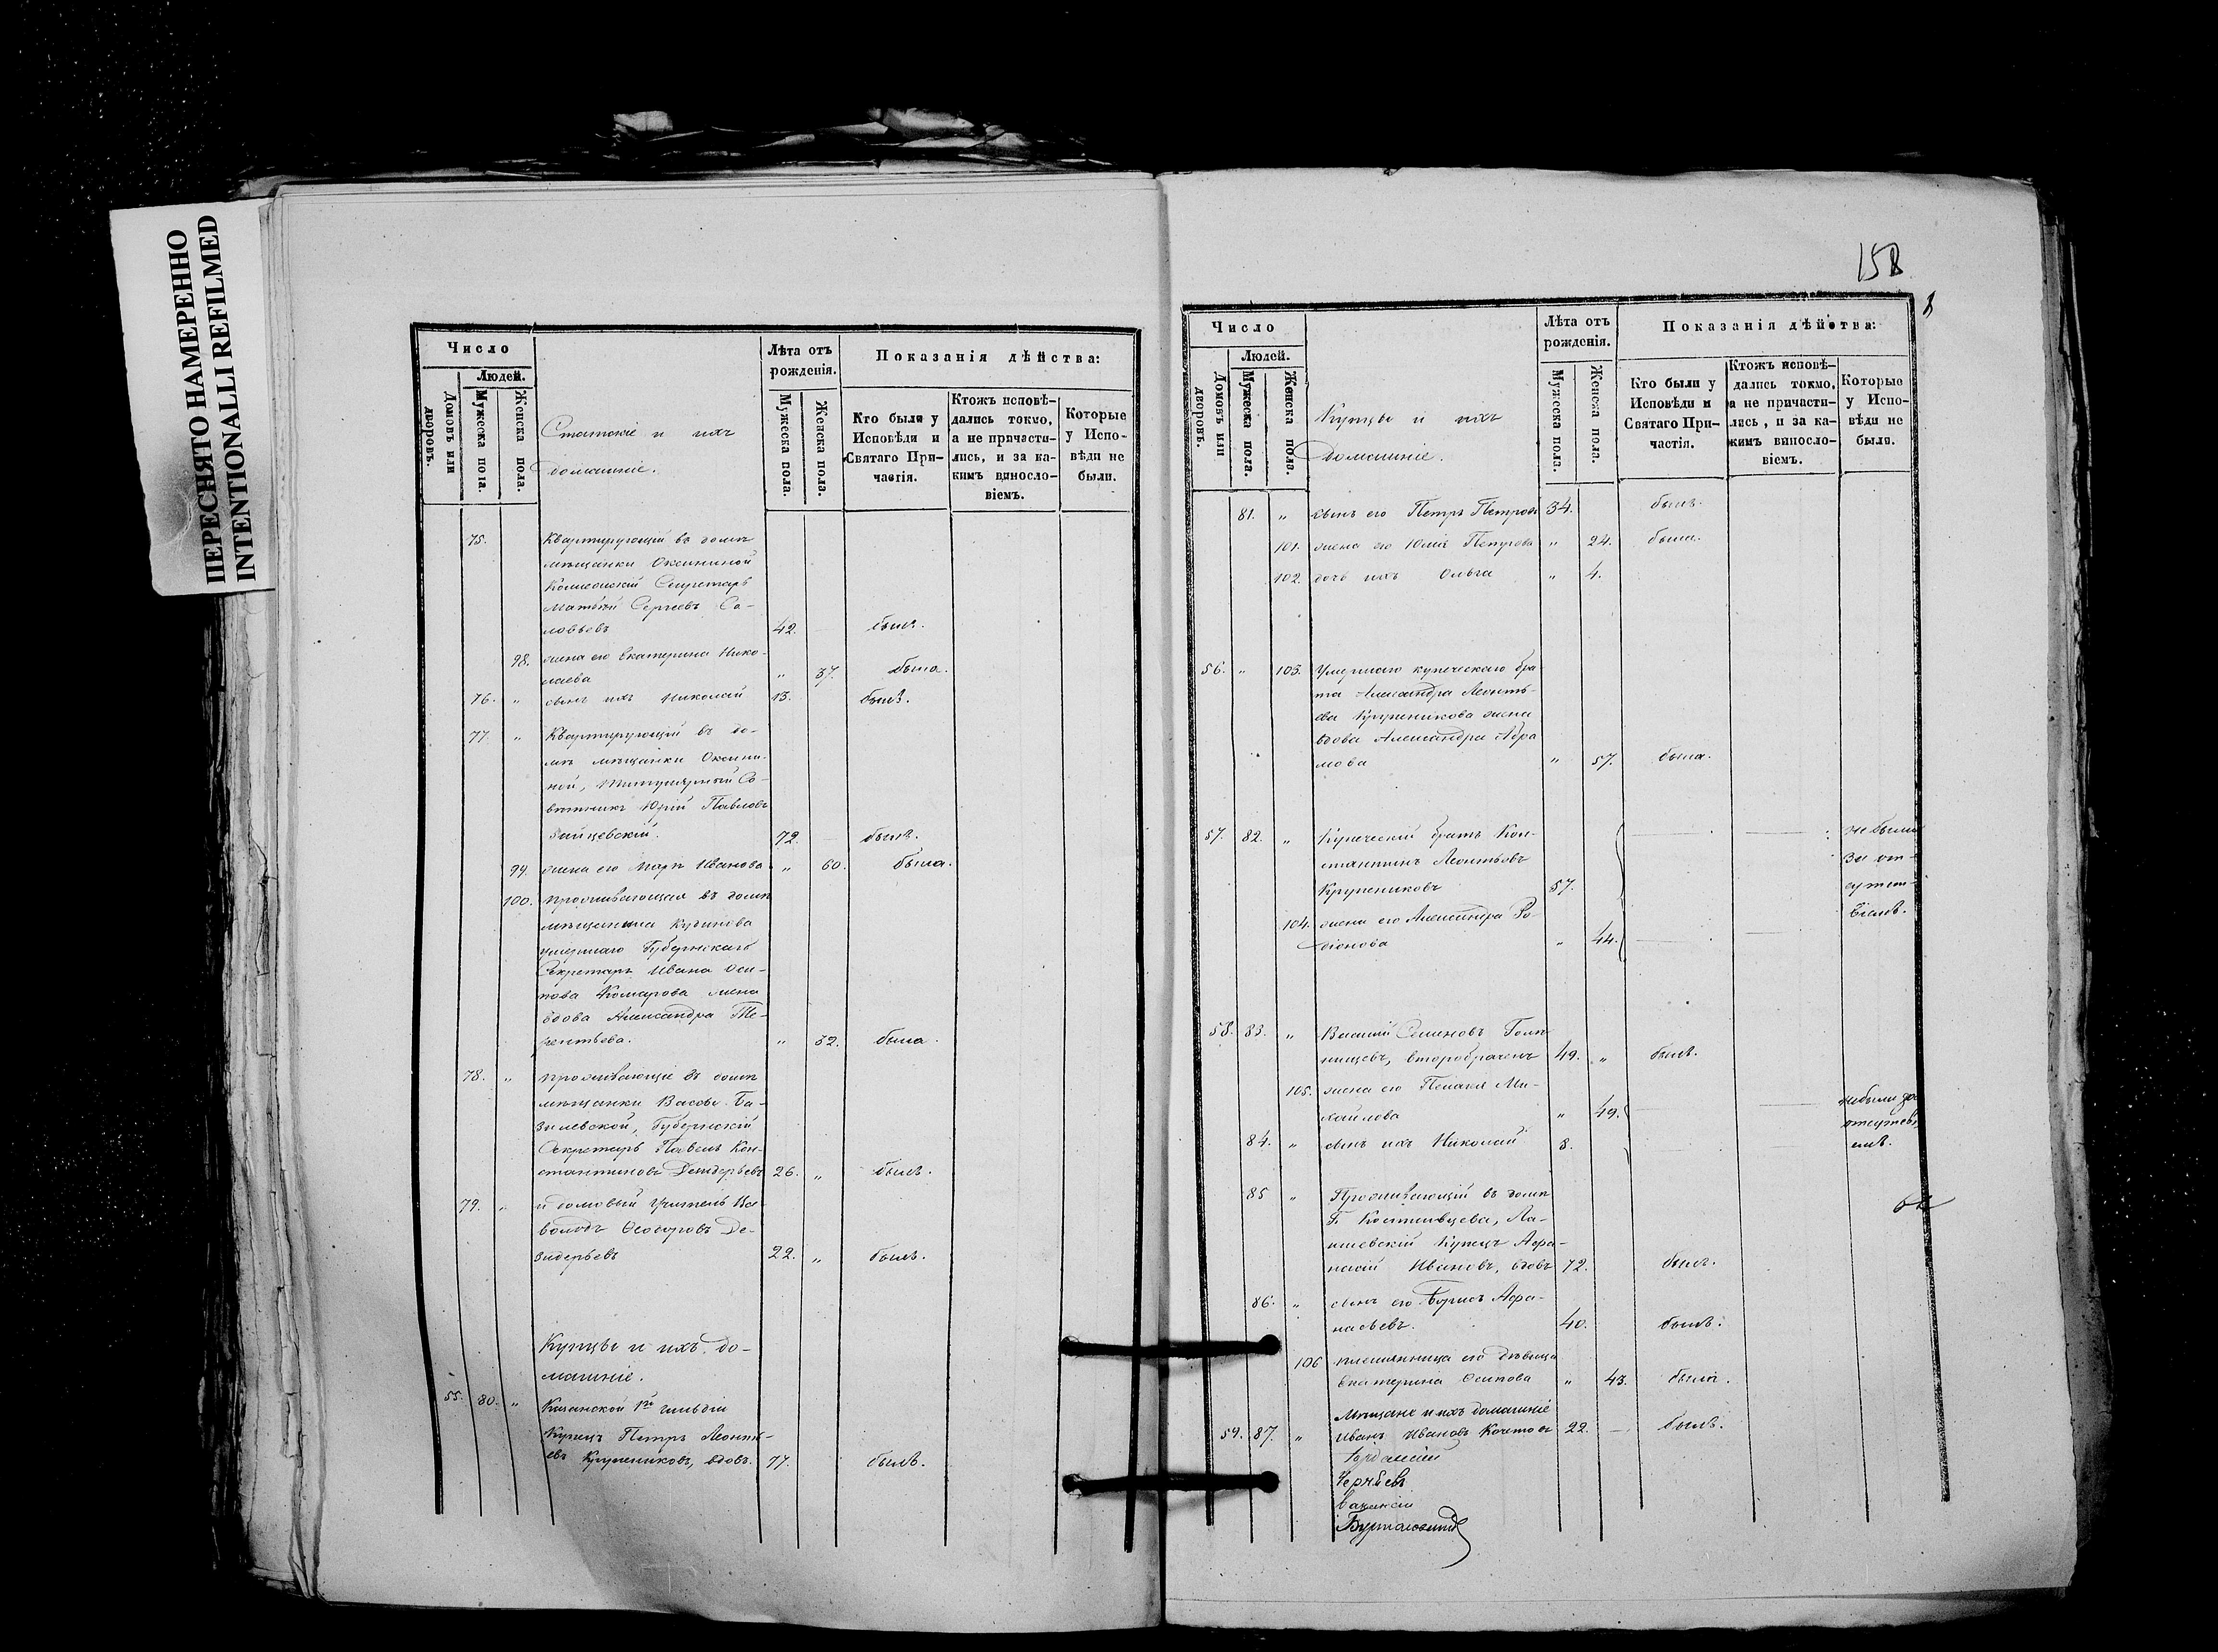 ПЕРЕСНЯТО НАМЕРЕННО
INTENTIONALLI REFILMED
Число
Людей.
Домовъ или дворовъ.
Мужеска пола.
Женска пола.
Статскіе и ихъ
домашніе.
Лѣта отъ рожденія.
Мужеска пола.
Женска пола.
Показанія дѣйства:
Кто были у Исповѣди и Святаго Причастія.
Ктожъ исповѣдались токмо, а не причастились, и за какимъ винословіемъ.
Которые у Исповѣди не были.
75. Квартирующій въ домѣ
мѣщанки Оксининой
Коллежскій Секретарь
Матвѣй Сергѣевъ Со-
ловьевъ 42. былъ.
98. жена его Екатерина Нико-
лаева " 37. была.
76. " сынъ ихъ Николай 13. былъ.
77. " Квартирующій въ до-
мѣ мѣщанки Оксини-
ной, Титулярный Со-
вѣтникъ Юрій Павловъ
Зайцевскій. 72. былъ.
99. жена его Марія Иванова " 60. была.
100. проживающая въ домѣ
мѣщанина
умершаго Губернскаго
Секретаря Ивана Оси-
пова Комарова жена
вдова Александра Те-
рентьева. " 32. была.
78. " проживающіе въ домѣ
мѣщанки Вассы Ба-
зилевской, Губернскій
Секретарь Павелъ Кон-
стантиновъ 26. " былъ.
79. " и домовый Учитель Все-
володъ Ѳеодоровъ Де-
зидерьевъ 22. " былъ.
Купцы и ихъ до-
машніе.
55. 80. " Казанской 1й гильдіи
Купецъ Петръ Леонть-
евъ Крупениковъ, вдовъ. 77. былъ.
158
Число
Людей.
Домовъ или дворовъ.
Мужеска пола.
Женска пола.
Купцы и ихъ
Домашніе.
Лѣта отъ рожденія.
Мужеска пола.
Женска пола.
Показанія дѣйства:
Кто были у Исповѣди и Святаго Причастія.
Ктожъ исповѣдались токмо, а не причастились, и за какимъ винословіемъ.
Которые у Исповѣди не были.
81. " сынъ его Петръ Петровъ 34. былъ.
101. жена его Юлія Петрова " 24. была.
102. дочь ихъ Ольга " 4.
56. " 103. Умершаго купеческаго бра
та Александра Леонть-
ева Крупеникова жена
вдова Александра Абра
мова " 57. была.
57. 82. " Купеческій братъ Кон- не были
стантинъ Леонтьевъ за от-
Крупениковъ 57. сутст-
104. жена его Александра Ро- віемъ.
діонова " 44.
58. 83. " Василій Семеновъ
второбраченъ 49. " былъ.
105. жена его Пелагея Ми-
хайлова " 49. небыли за
84. " сынъ ихъ Николай 8. отсутствіемъ.
85 " Проживающій въ домѣ
Г. Костливцева, Ла-
ишевскій Купецъ Аѳа-
насій Ивановъ, вдовъ 72. былъ.
86. " сынъ его Борисъ Аѳа-
насьевъ. 40. былъ.
106 племянница его дѣвица
Екатерина Осипова " 43. была.
Мѣщане и ихъ домашніе
59. 87. " Иванъ Ивановъ Кочетовъ 22. — былъ.